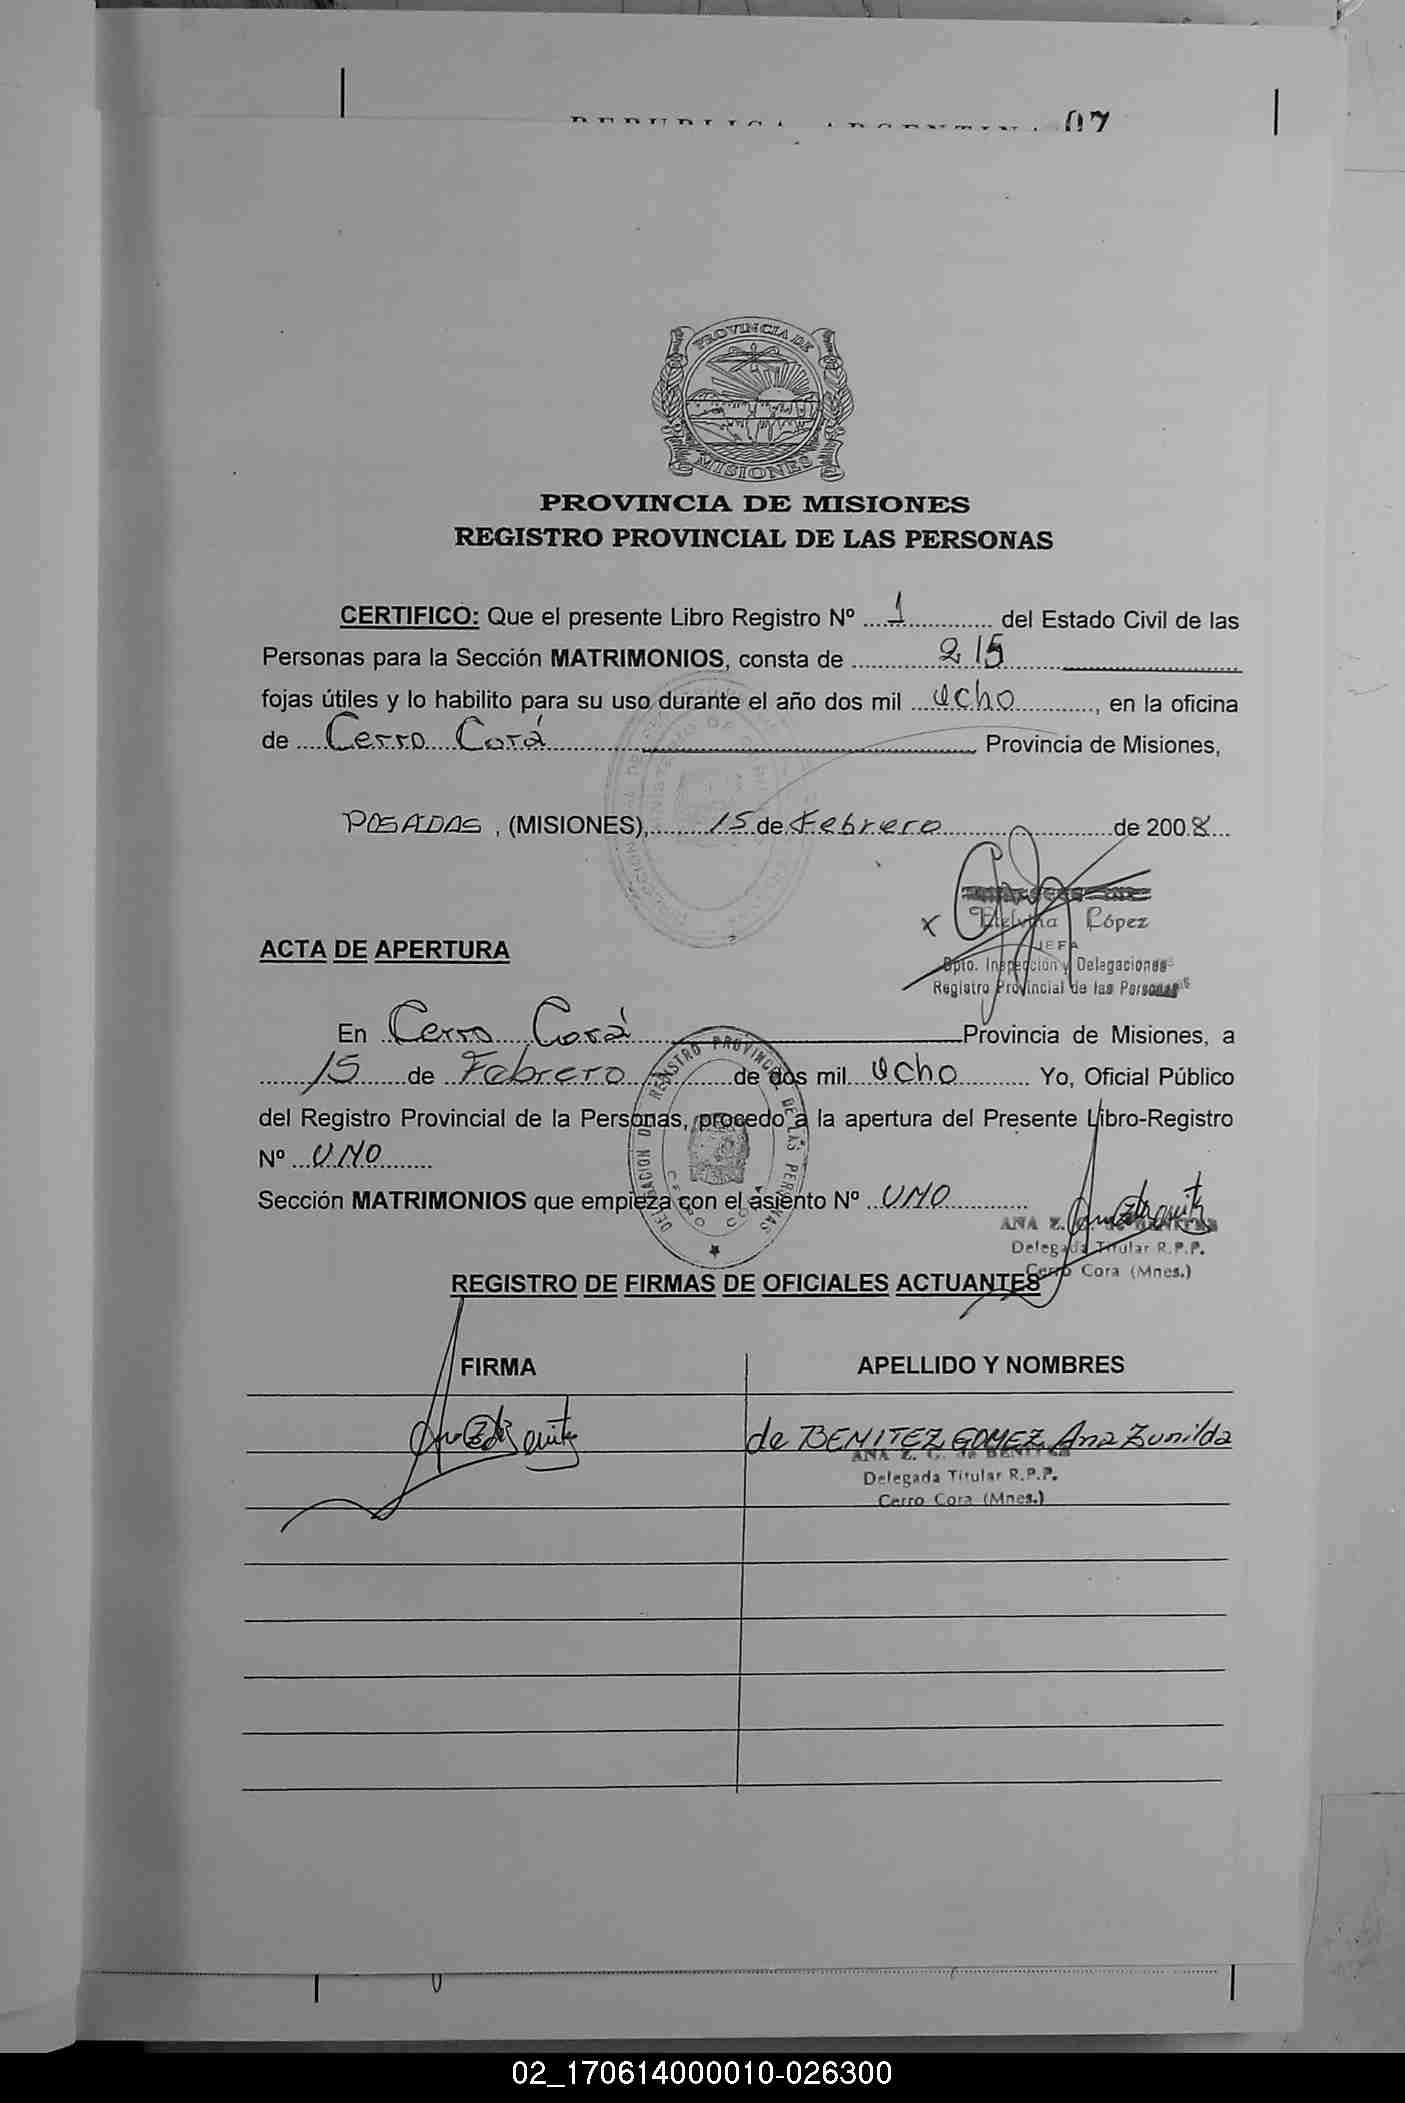 REPUBLICA ARGENTINA 07
PROVINCIA DE
MISIONES
PROVINCIA DE MISIONES
REGISTRO PROVINCIAL DE LAS PERSONAS
CERTIFICO: Que el presente Libro Registro Nº ....1.... del Estado Civil de las
Personas para la Sección MATRIMONIOS, consta de ....215....
fojas útiles y lo habilito para su uso durante el año dos mil ...ocho..., en la oficina
de ....Cerro Corá.... Provincia de Misiones,
POSADAS, (MISIONES),....15 de Febrero....de 2008...
Etelvina López
JEFA
Dpto. Inspección y Delegaciones
Registro Provincial de las Personas
ACTA DE APERTURA
En ..Cerro Corá....Provincia de Misiones, a
....15....de ..Febrero....de dos mil..ocho.... Yo, Oficial Público
del Registro Provincial de la Personas, procedo a la apertura del Presente Libro-Registro
Nº ...UNO....
Sección MATRIMONIOS que empieza con el asiento Nº ..UNO....
DELEGACION DEL REGISTRO PROVINCIAL DE LAS PERSONAS
CERRO CORA
ANA Z. G. de BENITEZ
Delegada Titular R.P.P.
Cerro Cora (Mnes.)
REGISTRO DE FIRMAS DE OFICIALES ACTUANTES
FIRMA APELLIDO Y NOMBRES
de BENITEZ GOMEZ, Ana Zunilda
ANA Z. G. de BENITEZ
Delegada Titular R.P.P.
Cerro Cora (Mnes.)
02_170614000010-026300